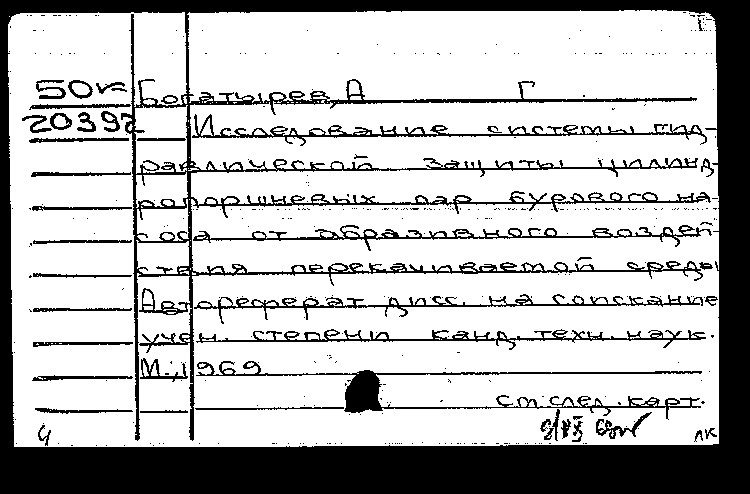 50к Богатырев, А Г
20392 Исследование системы гид-
равлической защиты цилинд-
ропоршневых пар бурового на-
соса от абразивного воздей-
ствия перекачиваемой среды
Автореферат дисс. на соискание
учен. степени канд. техн. наук.
М., 1969
см след. карт.
лк